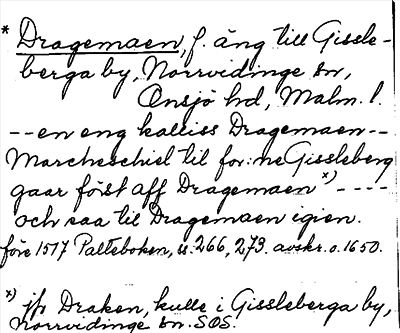 * Dragemaen, f. äng till Gissle-
berga by, Norrvidinge sn,
Onsjö hd, Malm. l.
-- en eng kalliss Dragemaen --
Marcheschiel til for: ne Gissleberg
gaar först aff Dragemaen x) ----
och saa til Dragemaen igien.
före 1517 Palteboken, ss. 266, 273. avskr. o. 1650.
x) jfr Draken, kulle i Gissleberga by,
Norrvidinge sn. SOS.